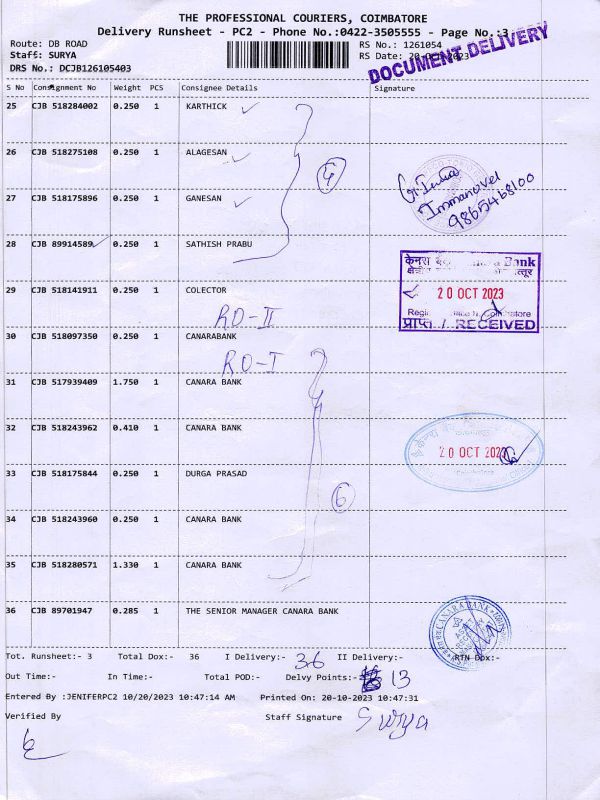 THE PROFESSIONAL COURIERS, COIMBATORE
Delivery Runsheet - PC2 - Phone No.:0422-3505555 - Page No.:3
Route: DB ROAD RS No.: 1261054
Staff: SURYA RS Date: 20-Oct-2023
DRS No.: DCJB126105403
DOCUMENT DELIVERY
S No Consignment No Weight PCS Consignee Details Signature
25 CJB 518284002 0.250 1 KARTHICK
26 CJB 518275108 0.250 1 ALAGESAN
4
Immanovel
9865468100
27 CJB 518175896 0.250 1 GANESAN
28 CJB 89914589 0.250 1 SATHISH PRABU
केनरा Bank
क्षेत्रीय
29 CJB 518141911 0.250 1 COLECTOR
20 OCT 2023
RO-II
प्राप्त / RECEIVED
30 CJB 518097350 0.250 1 CANARABANK
RO-I
31 CJB 517939409 1.750 1 CANARA BANK
32 CJB 518243962 0.410 1 CANARA BANK
20 OCT 2023
33 CJB 518175844 0.250 1 DURGA PRASAD
6
34 CJB 518243960 0.250 1 CANARA BANK
35 CJB 518280571 1.330 1 CANARA BANK
36 CJB 89701947 0.285 1 THE SENIOR MANAGER CANARA BANK
CANARA BANK
Tot. Runsheet:- 3 Total Dox:- 36 I Delivery:- 36 II Delivery:- RTN Dox:-
Out Time:- In Time:- Total POD:- Delvy Points:- 13
Entered By :JENIFERPC2 10/20/2023 10:47:14 AM Printed On: 20-10-2023 10:47:31
Verified By Staff Signature Surya